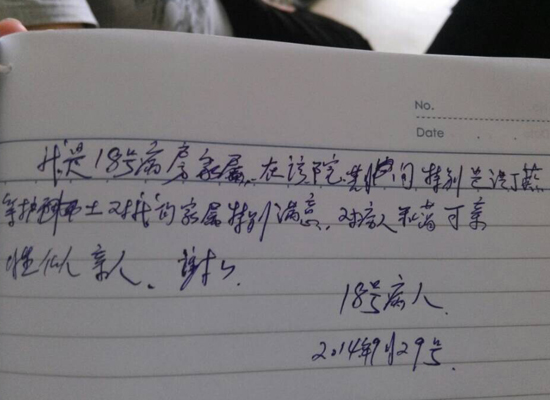 No.
Date
我是18号病房家属,在该院其间特别是
等护士对我们家属特别满意,对病人和蔼可亲
性似人亲人、谢谢
18号病人
2014年9月29号.